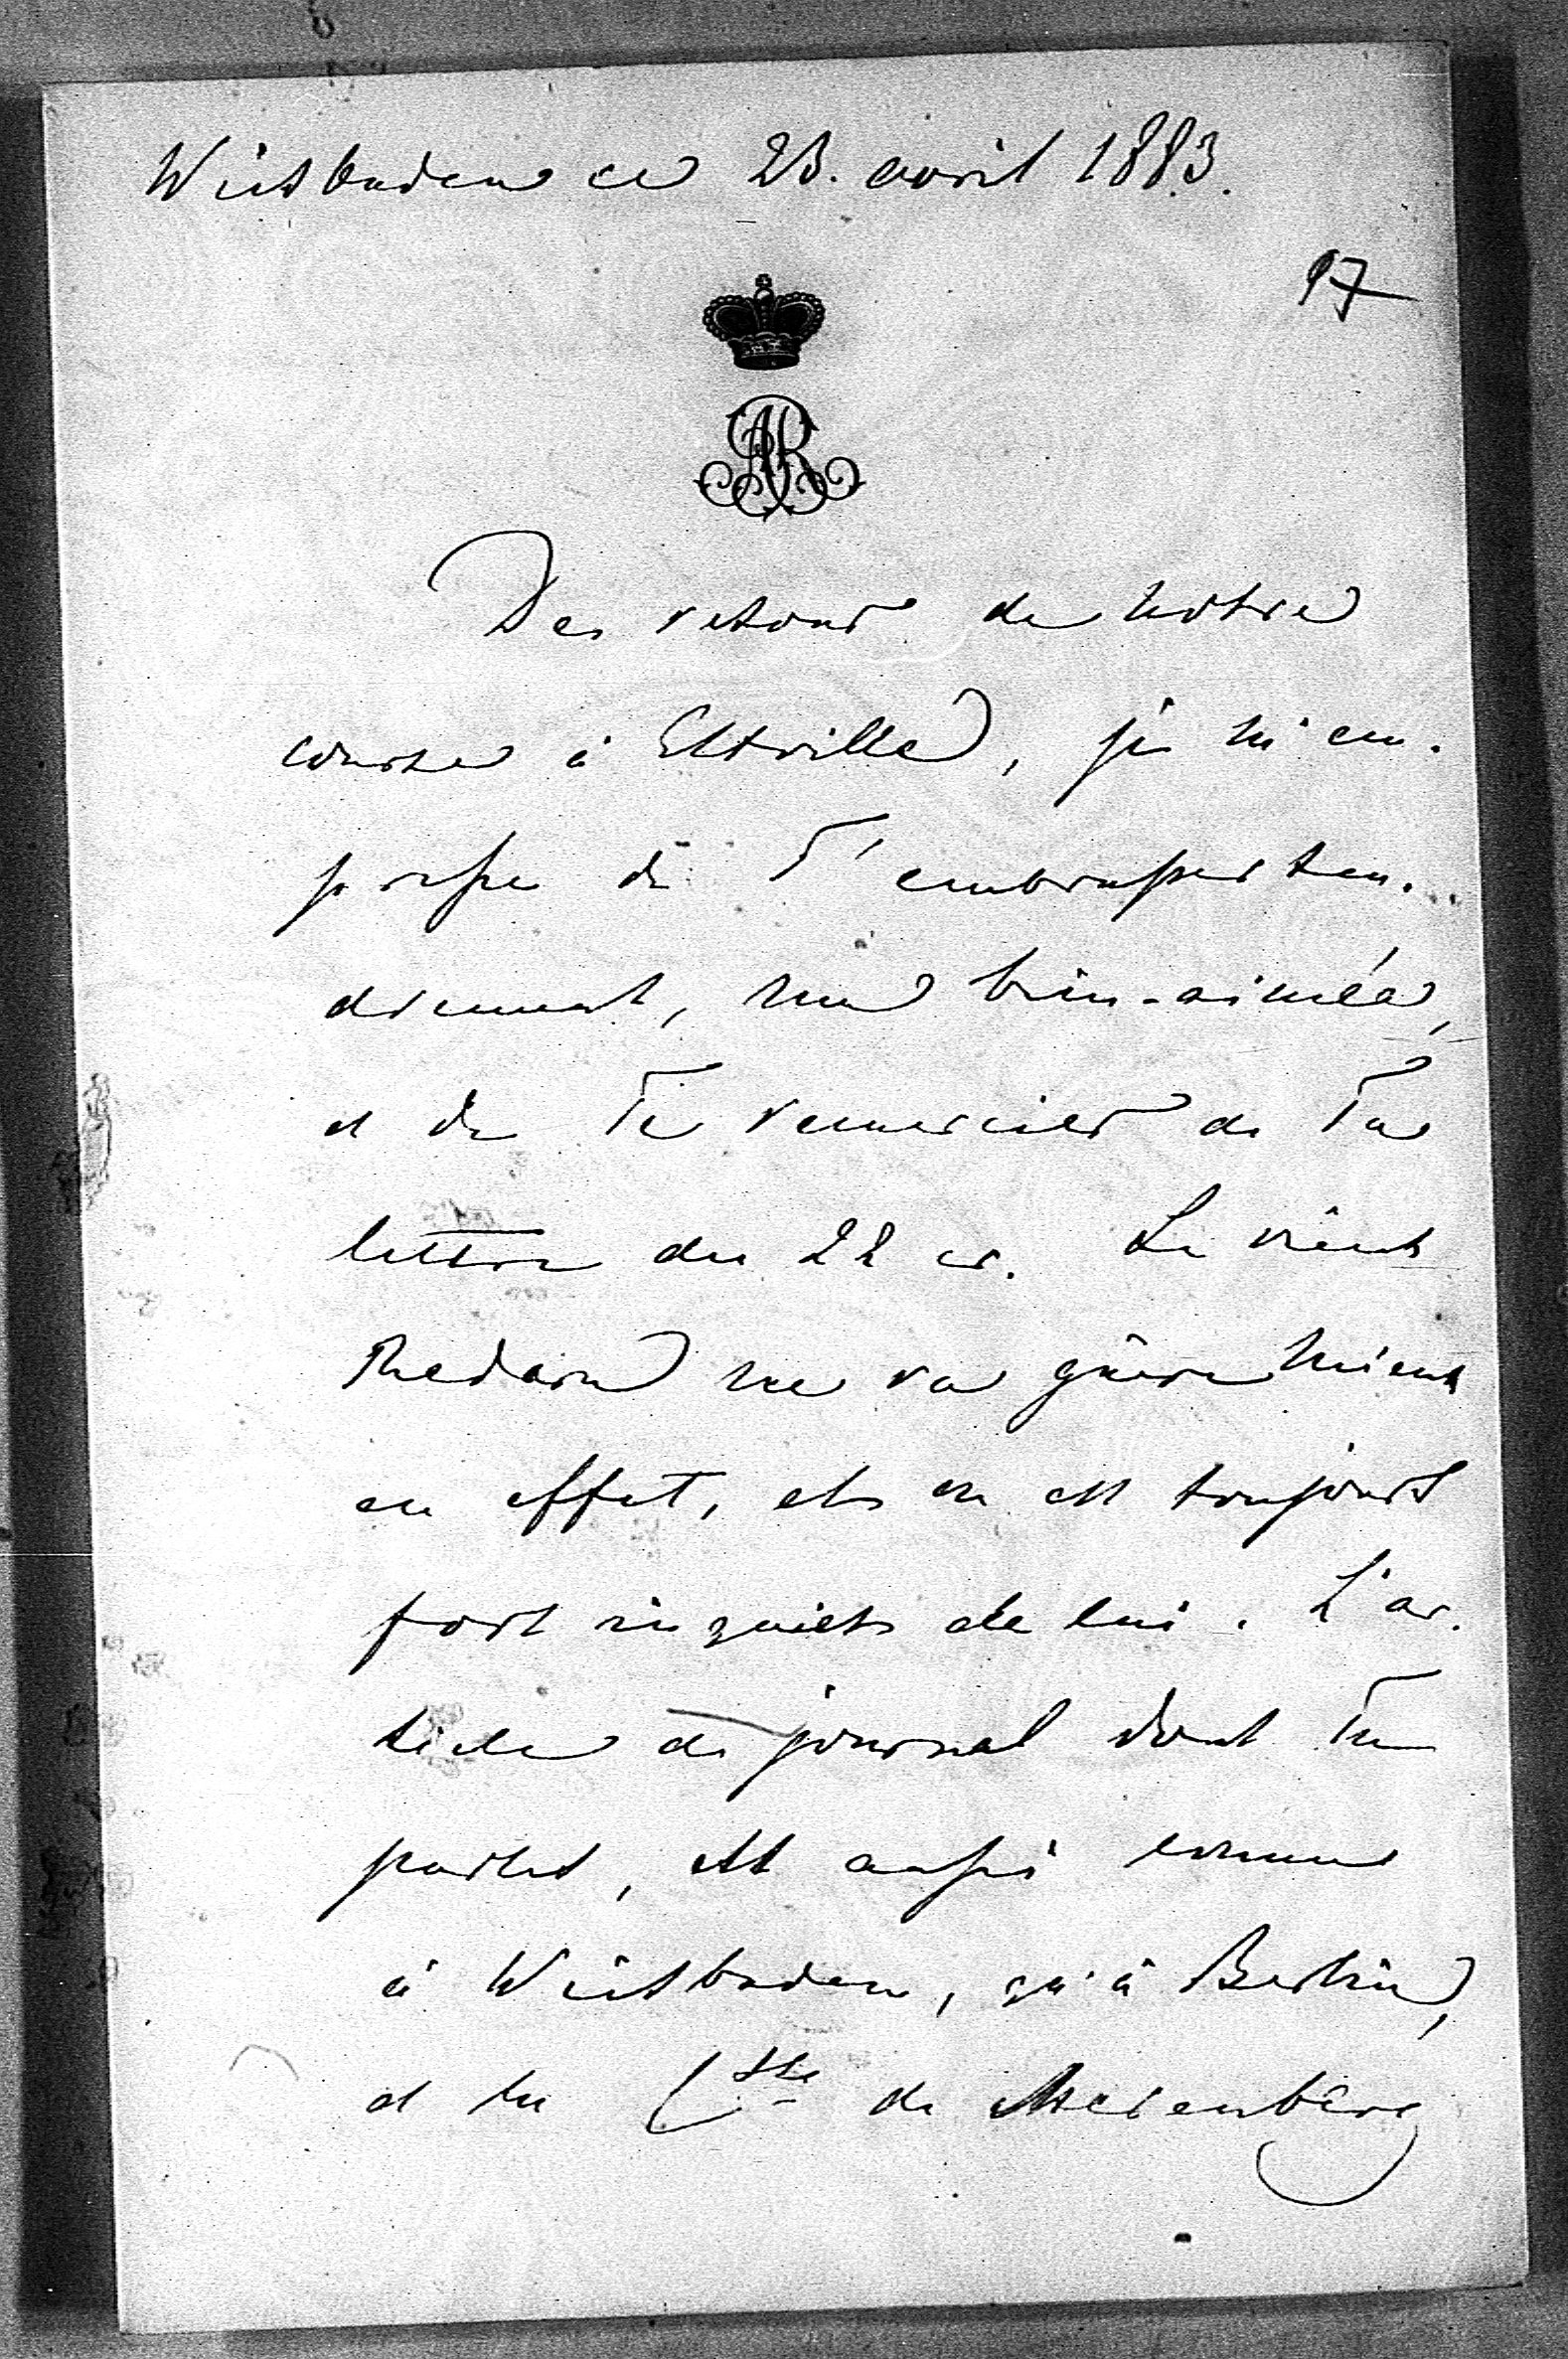 Wiesbaden ce 23. avril 1883.
97
AR
De retour de notre
course à Eltville, je m'em-
presse de T'embrasser ten-
drement, ma bien-aimée,
et de Te remercier de Ta
lettre du 22 cr. Le vieux
Redern ne va guère mieux
en effet, et on est toujours
fort inquiets de lui. L'ar-
ticle de journal dont Tu
parles, est aussi connu
à Wiesbaden, qu'à Berlin,
et la Ctsse de Merenberg